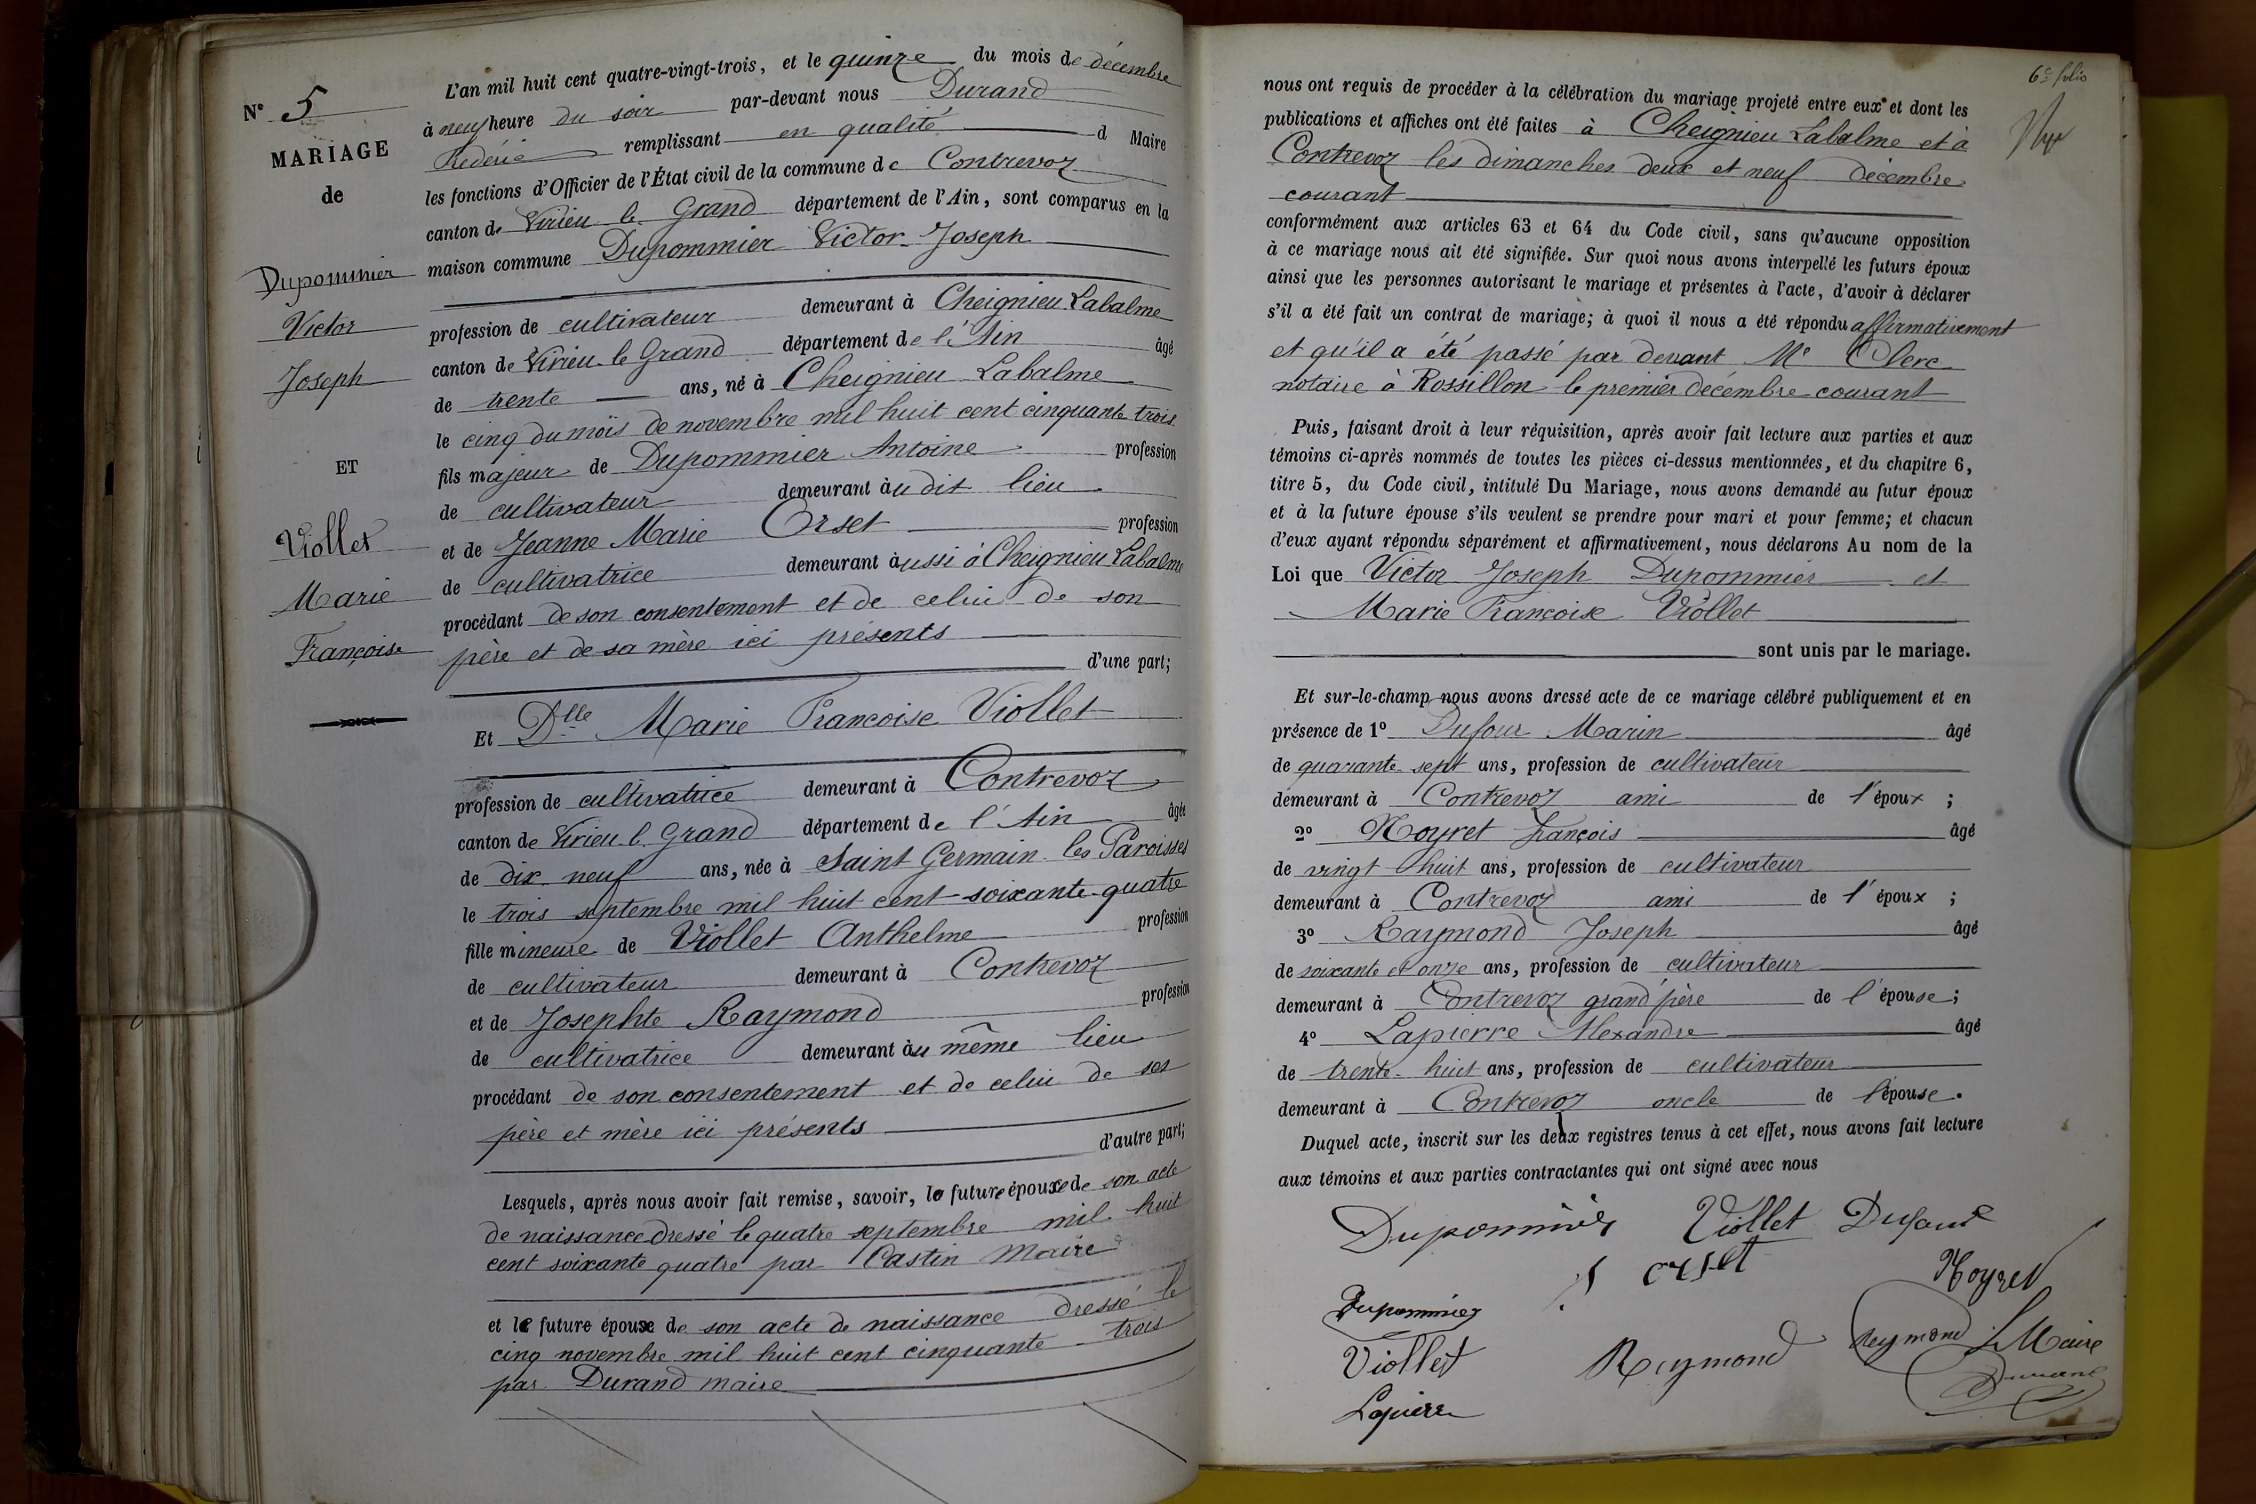 N° 5
MARIAGE
de
Dupommier
Victor
Joseph
ET
Viollet
Marie
Françoise
L'an mil huit cent quatre-vingt-trois, et le quinze du mois de décembre
à neuf heure du soir par-devant nous Durand
Fréderic remplissant en qualité d Maire
les fonctions d'Officier de l'État civil de la commune de Contrevoz
canton de Virieu le Grand département de l'Ain, sont comparus en la
maison commune Dupommier Victor Joseph
profession de cultivateur demeurant à Cheignieu Labalme
canton de Virieu le Grand département de l'Ain âgé
de trente ans, né à Cheignieu Labalme
le cinq du mois de novembre mil huit cent cinquante trois
fils majeur de Dupommier Antoine profession
de cultivateur demeurant àu dit lieu
et de Jeanne Marie Orset profession
de cultivatrice demeurant àussi à Cheignieu Labalme
procédant de son consentement et de celui de son
père et de sa mère ici présents
d'une part;
Et Dlle Marie Françoise Viollet
profession de cultivatrice demeurant à Contrevoz
canton de Virieu le Grand département de l'Ain âgée
de dix neuf ans, née à Saint Germain les Paroisses
le trois septembre mil huit cent soixante quatre
fille mineure de Viollet Anthelme profession
de cultivateur demeurant à Contrevoz
et de Josephte Raymond profession
de cultivatrice demeurant àu même lieu
procédant de son consentement et de celui de ses
père et mère ici présents
d'autre part;
Lesquels, après nous avoir fait remise, savoir, la future épouse de son acte
de naissance dressé le quatre septembre mil huit
cent soixante quatre par Castin Maire
et le future épouxe de son acte de naissance dressé le
cinq novembre mil huit cent cinquante trois
par Durand maire
6e folio
nous ont requis de procéder à la célébration du mariage projeté entre eux et dont les
publications et affiches ont été faites à Cheignieu Labalme et à
Contrevoz les dimanches deux et neuf décembre
courant
conformément aux articles 63 et 64 du Code civil, sans qu'aucune opposition
à ce mariage nous ait été signifiée. Sur quoi nous avons interpellé les futurs époux
ainsi que les personnes autorisant le mariage et présentes à l'acte, d'avoir à déclarer
s'il a été fait un contrat de mariage; à quoi il nous a été répondu affirmativement
et qu'il a été passé par devant Me Clerc
notaire à Rossillon le premier décembre courant
Puis, faisant droit à leur réquisition, après avoir fait lecture aux parties et aux
témoins ci-après nommés de toutes les pièces ci-dessus mentionnées, et du chapitre 6,
titre 5, du Code civil, intitulé Du Mariage, nous avons demandé au futur époux
et à la future épouse s'ils veulent se prendre pour mari et pour femme; et chacun
d'eux ayant répondu séparément et affirmativement, nous déclarons Au nom de la
Loi que Victor Joseph Dupommier et
Marie Françoise Viollet
sont unis par le mariage.
Et sur-le-champ nous avons dressé acte de ce mariage célébré publiquement et en
présence de 1° Dufour Marin âgé
de quarante sept ans, profession de cultivateur
demeurant à Contrevoz ami de l'époux ;
2° Noyret françois âgé
de vingt huit ans, profession de cultivateur
demeurant à Contrevoz ami de l'époux ;
3° Raymond Joseph âgé
de soixante et onze ans, profession de cultivateur
demeurant à Contrevoz grand père de l'épouse ;
4° Lapierre Alexandre âgé
de trente huit ans, profession de cultivateur
demeurant à Contrevoz oncle de l'épouse.
Duquel acte, inscrit sur les deux registres tenus à cet effet, nous avons fait lecture
aux témoins et aux parties contractantes qui ont signé avec nous
Dupommier Viollet Dufour
J orset Noyret
Dupommier
Viollet Raymond Reymond Le Maire
Lapierre Durand